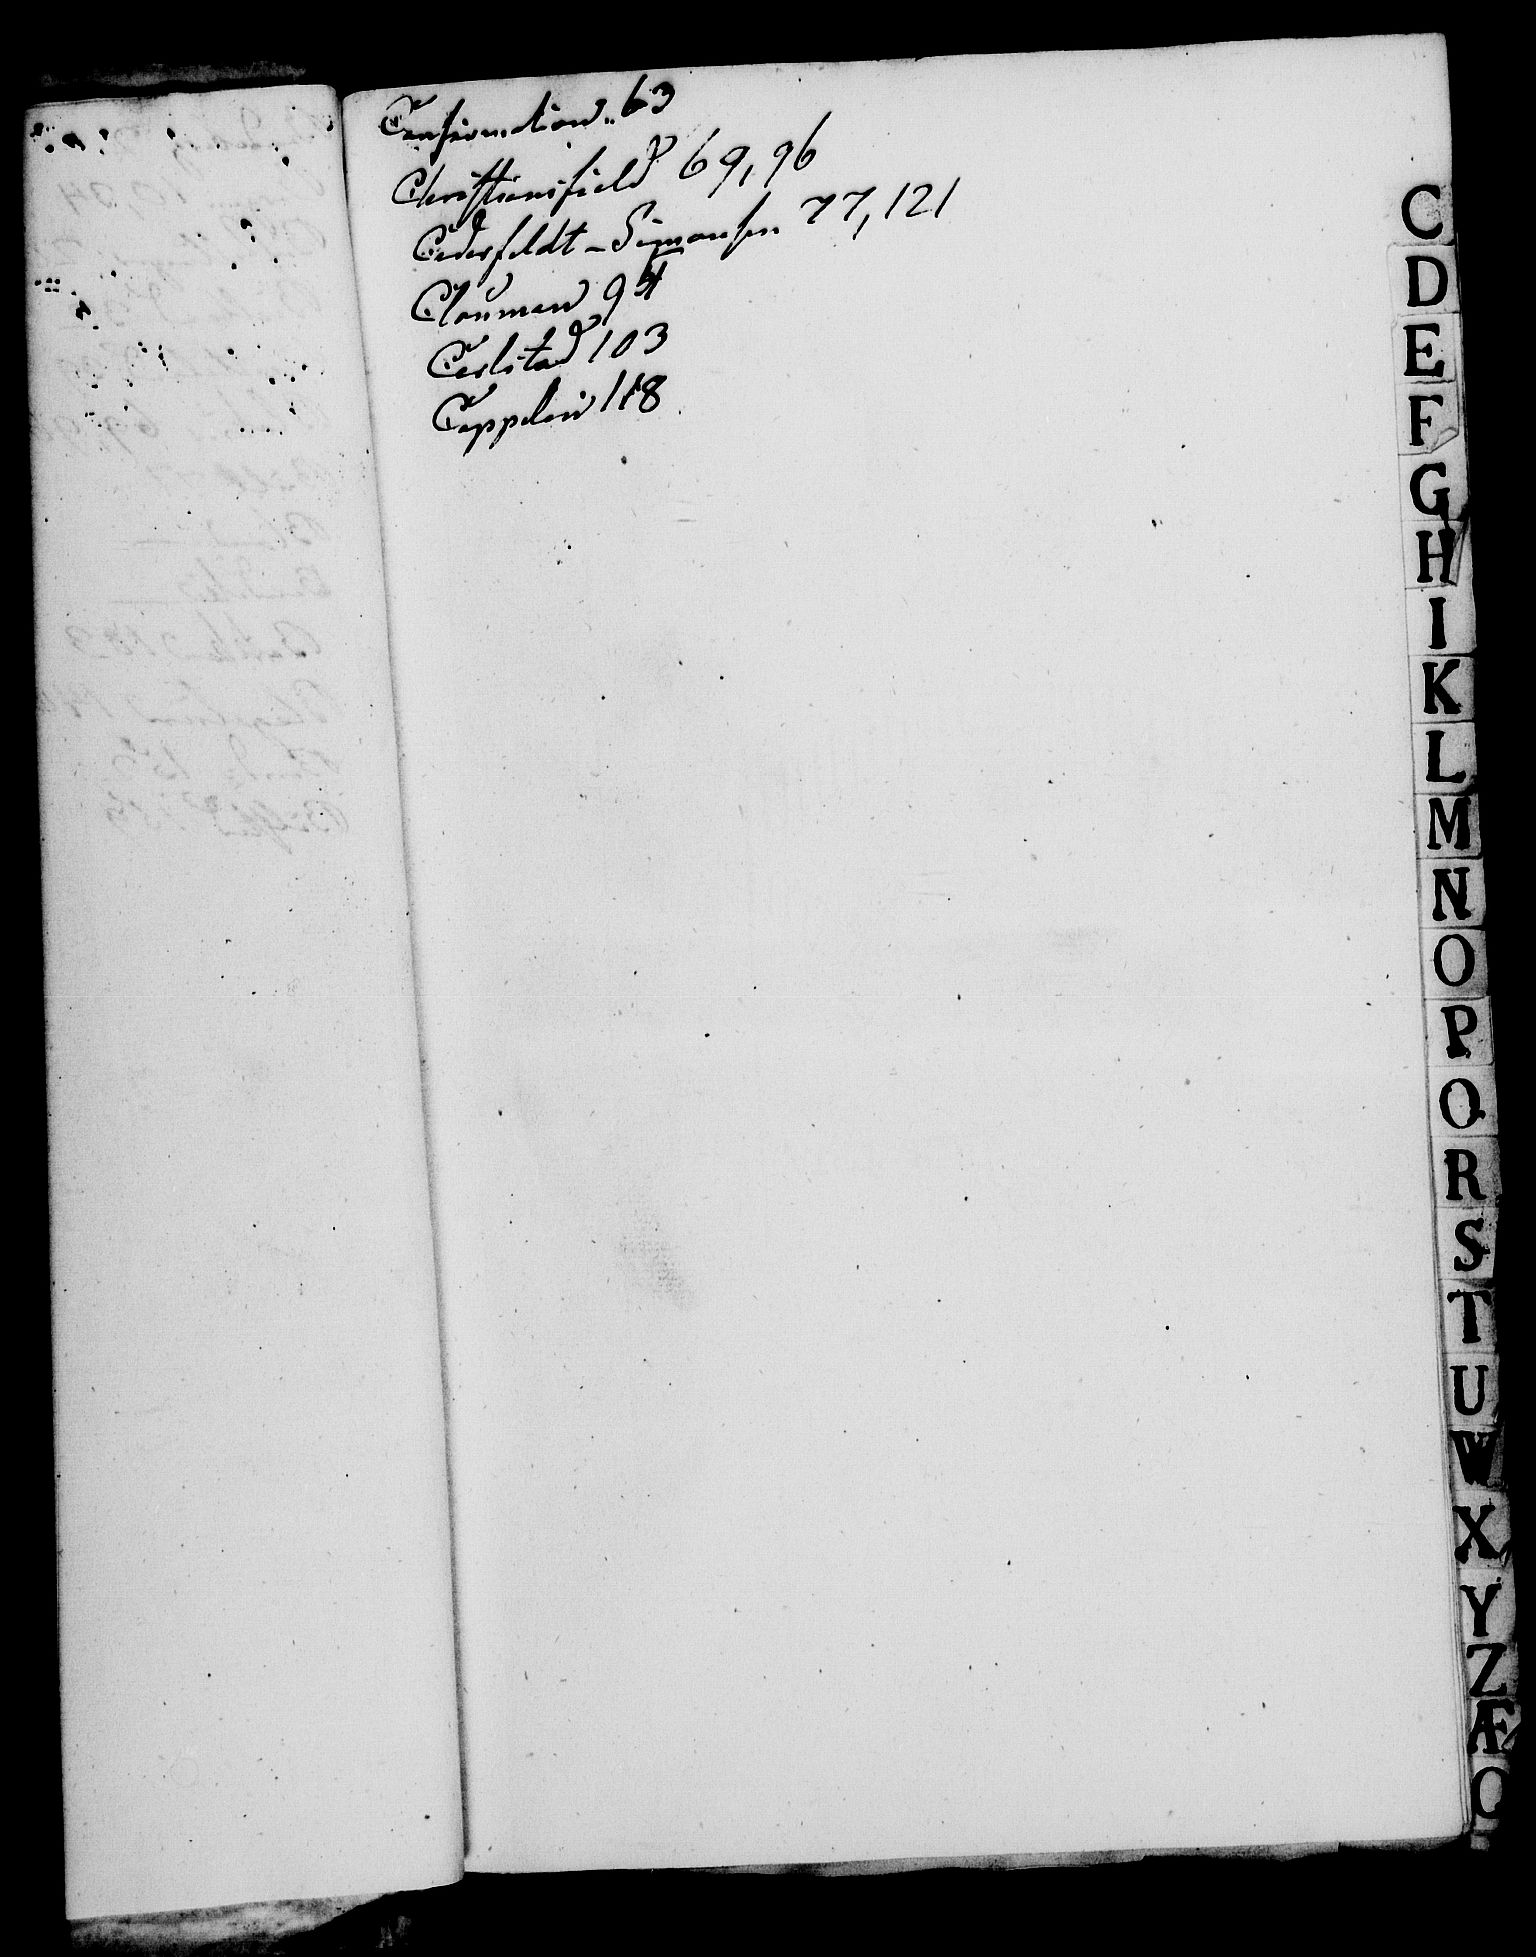 Confirmation.. 63
Christiansfield 69, 96
Cederfeldt-Simonsen 77, 121
Clouman 94
Carlstad 103
Cappelen 118
C
D
E
F
G
H
I
K
L
M
N
O
P
Q
R
S
T
U
W
X
Y
Z
Æ